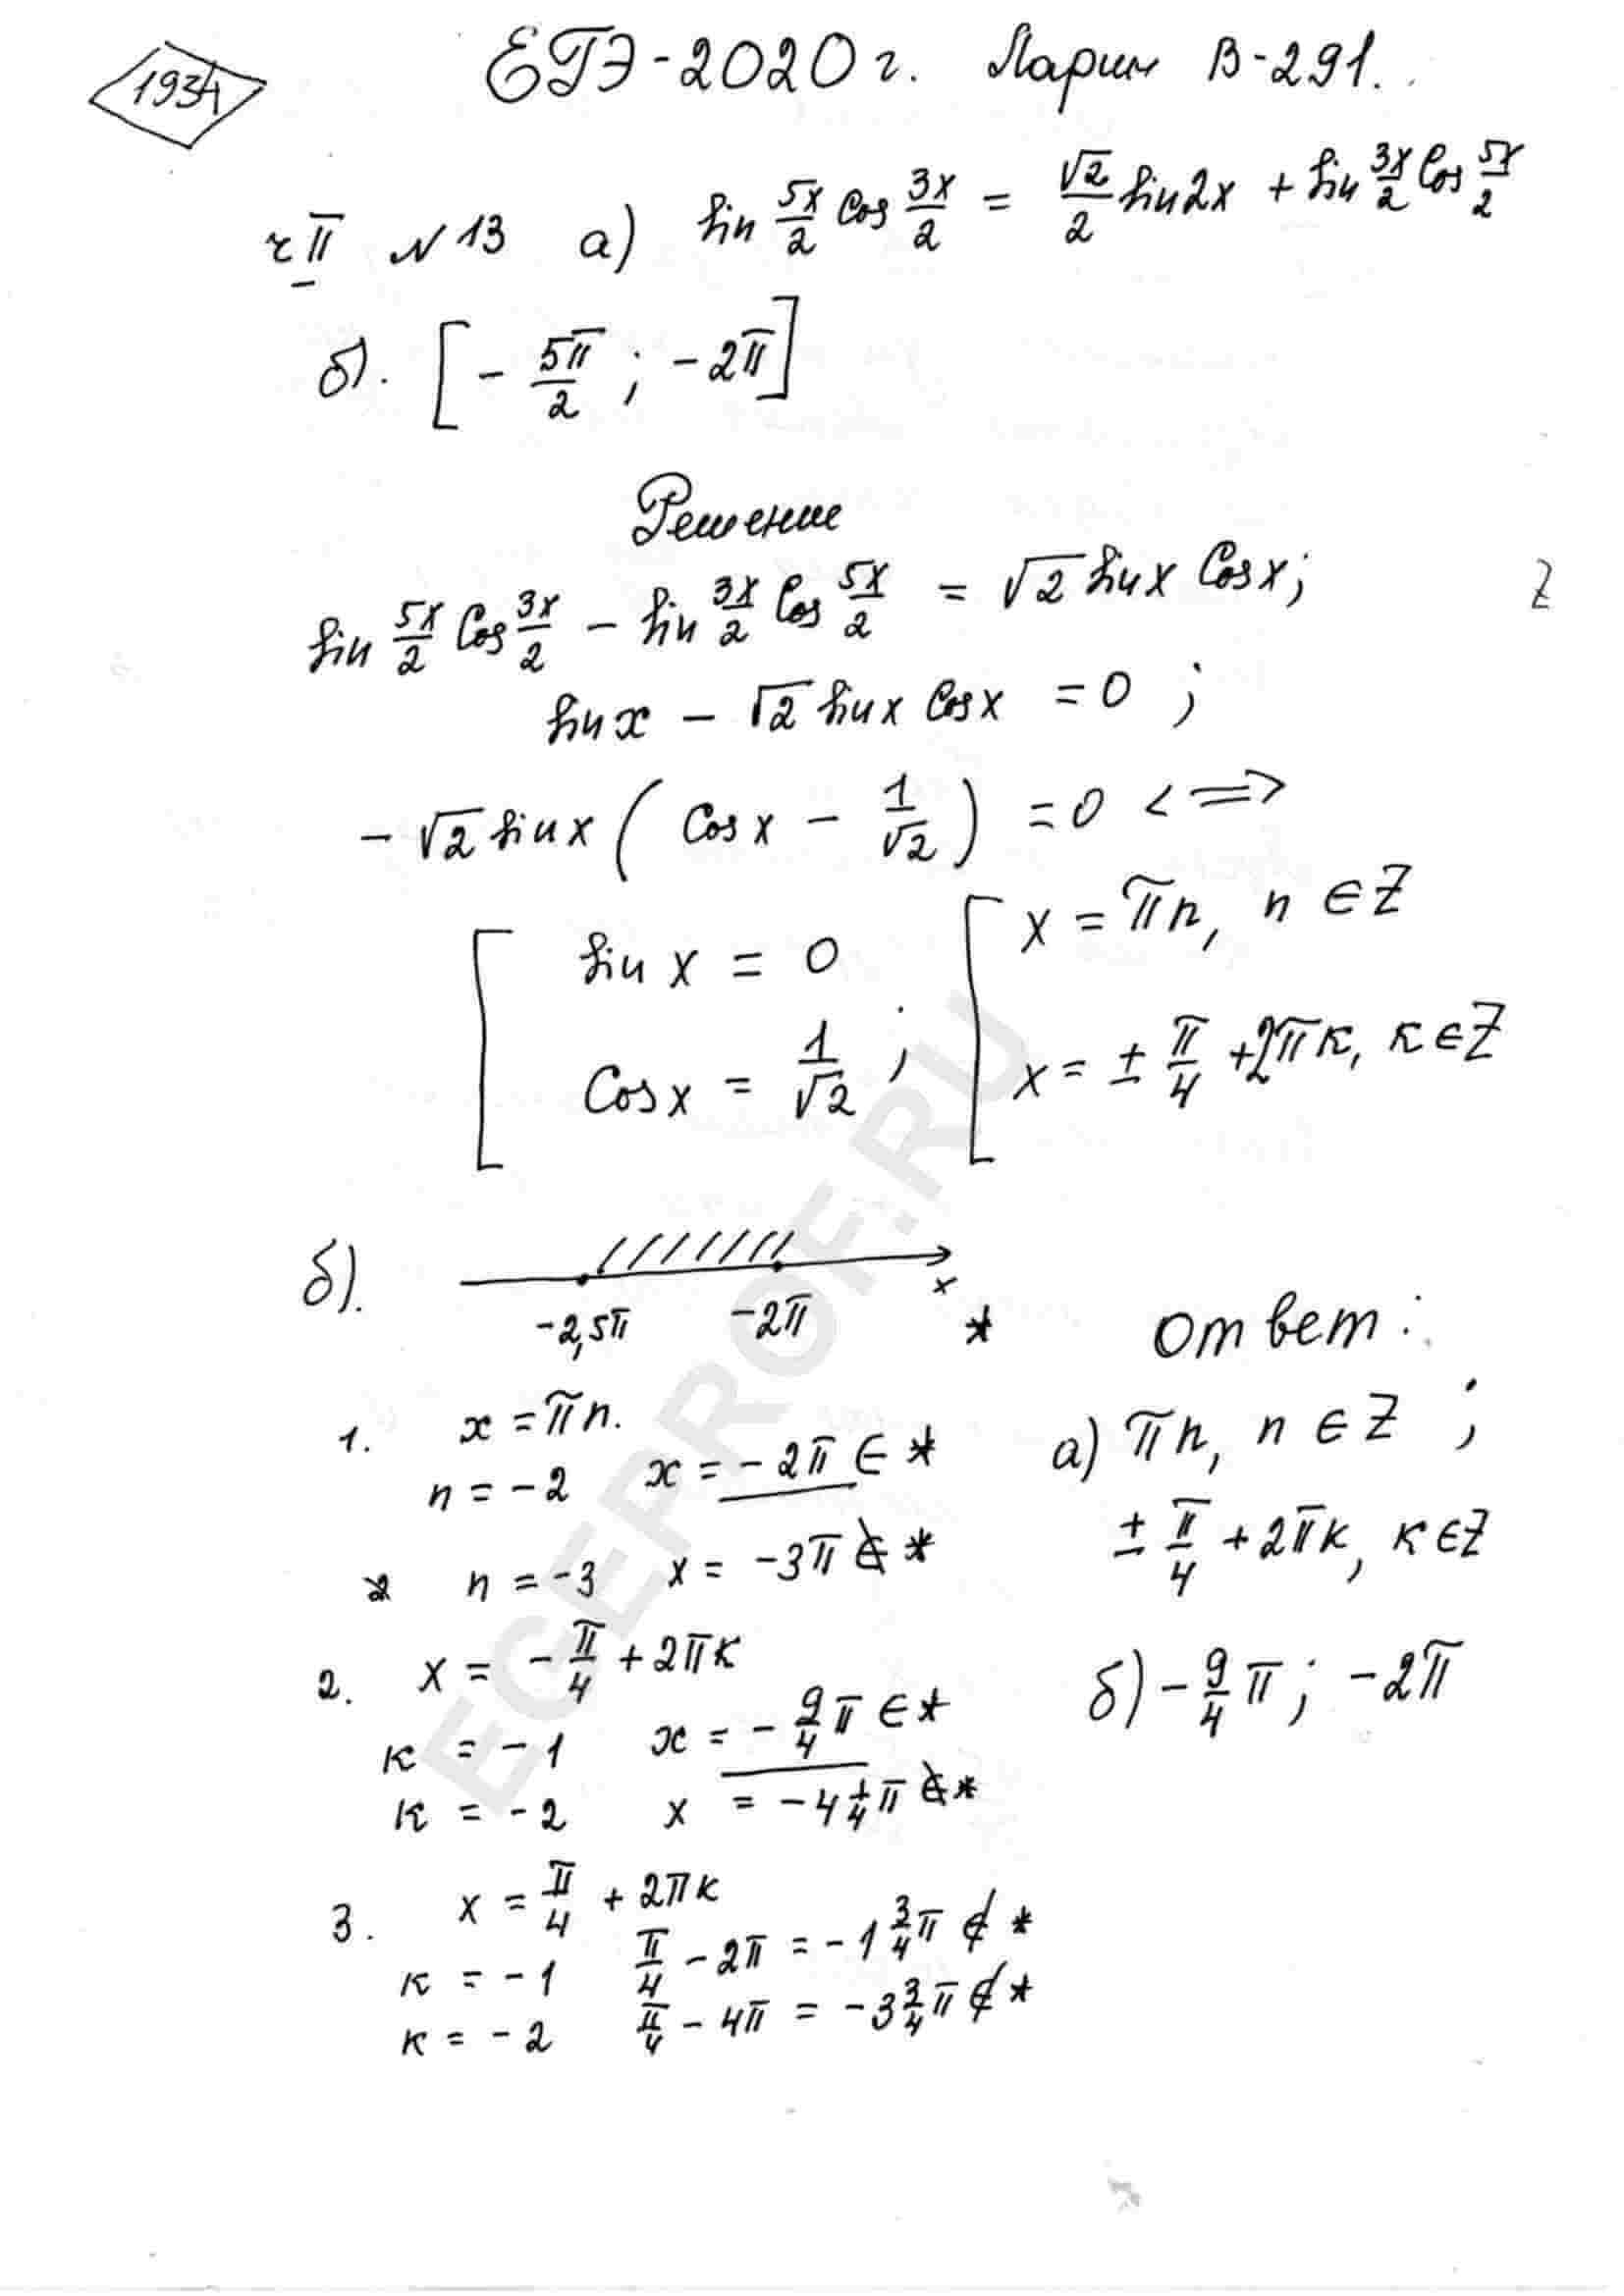 1934
ЕГЭ-2020 г. Ларин В-291.
ч II N 13 а) sin 5x/2 cos 3x/2 = √2/2 sin2x + sin 3x/2 cos 5x/2
б). [- 5π/2 ; -2π]
Решение
sin 5x/2 cos 3x/2 - sin 3x/2 cos 5x/2 = √2 sinx cosx;
Z
sinx - √2 sinx cosx = 0 ;
-√2 sinx ( cosx - 1/√2 ) = 0 <=>
[ sin x = 0
cosx = 1/√2 ;
[ x = πn, n ∈ Z
x = ± π/4 + 2πк, к ∈ Z
б).
-2,5π -2π x *
1. x = πn.
n = -2 x = -2π ∈ *
n = -3 x = -3π ∉ *
2. x = - π/4 + 2πк
к = -1 x = - 9/4 π ∈ *
к = -2 x = -4 1/4 π ∉ *
3. x = π/4 + 2πк
к = -1 π/4 - 2π = -1 3/4 π ∉ *
к = -2 π/4 - 4π = -3 3/4 π ∉ *
Ответ:
а) πn, n ∈ Z ;
± π/4 + 2πк, к ∈ Z
б) - 9/4 π ; -2π
EGEPROF.RU